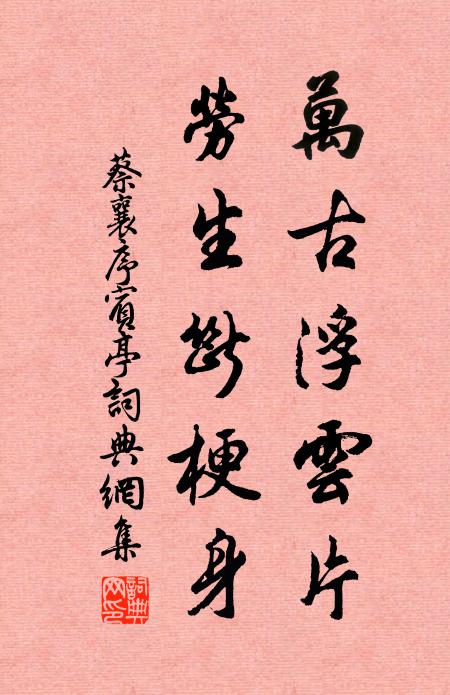 萬古浮雲片
勞生斷梗身
蔡襄序賓亭詞典網集
詞典網印